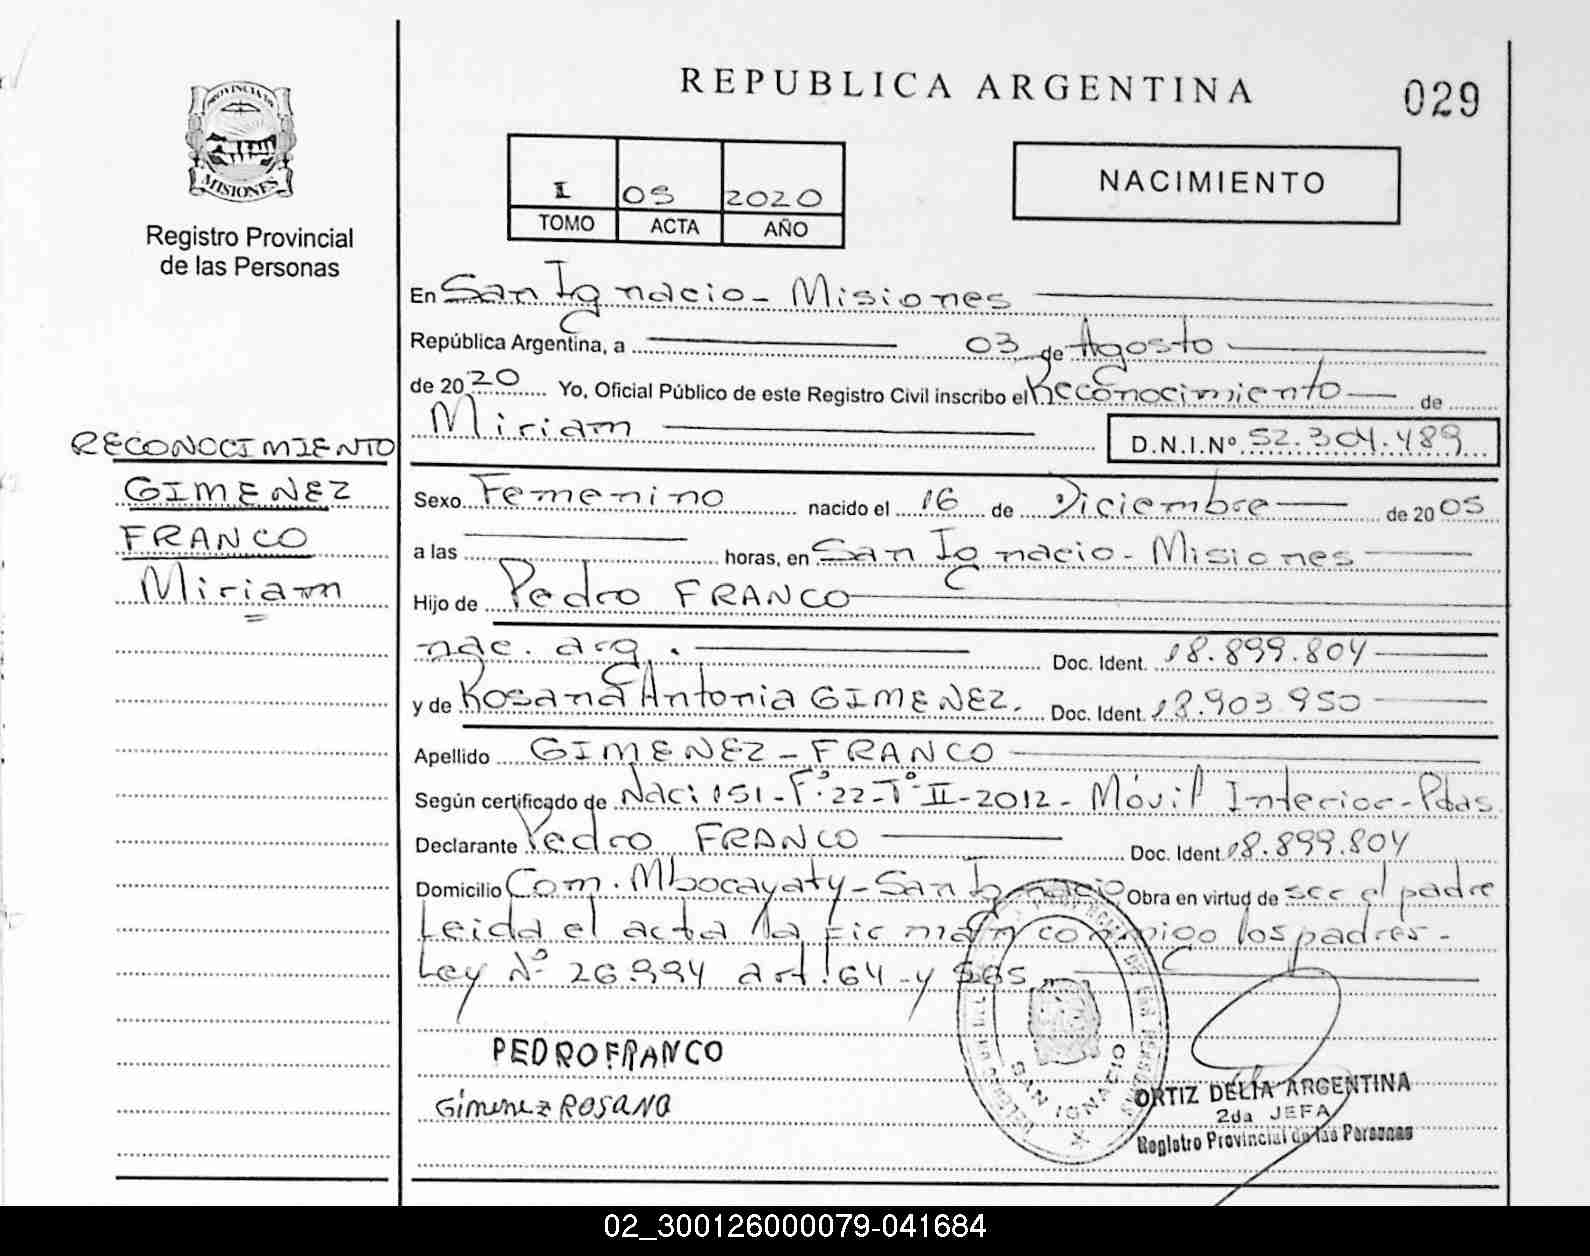 REPUBLICA ARGENTINA
029
PROVINCIA DE
MISIONES
Registro Provincial
de las Personas
I 05 2020
TOMO ACTA AÑO
NACIMIENTO
En San Ignacio - Misiones
República Argentina, a 03 de Agosto
de 2020 Yo, Oficial Público de este Registro Civil inscribo el Reconocimiento de
Miriam D.N.I.Nº 52.304.489
RECONOCIMIENTO
GIMENEZ
FRANCO
Miriam
Sexo Femenino nacido el 16 de Diciembre de 2005
a las horas, en San Ignacio - Misiones
Hijo de Pedro FRANCO
nac. arg. Doc. Ident. 18.899.804
y de Rosana Antonia GIMENEZ. Doc. Ident. 18.903.950
Apellido GIMENEZ - FRANCO
Según certificado de Nac: 151 - Fº 22 - Tº II - 2012 - Móvil Interior - Pdas
Declarante Pedro FRANCO Doc. Ident 18.899.804
Domicilio Com. Mbocayaty - San Ignacio Obra en virtud de ser el padre
Leida el acta la firman conmigo los padres -
Ley Nº 26.994 art. 64 - y
PEDRO FRANCO
Gimenez ROSANA
SAN IGNACIO
ORTIZ DELIA ARGENTINA
2da JEFA
Registro Provincial de las Personas
02_300126000079-041684